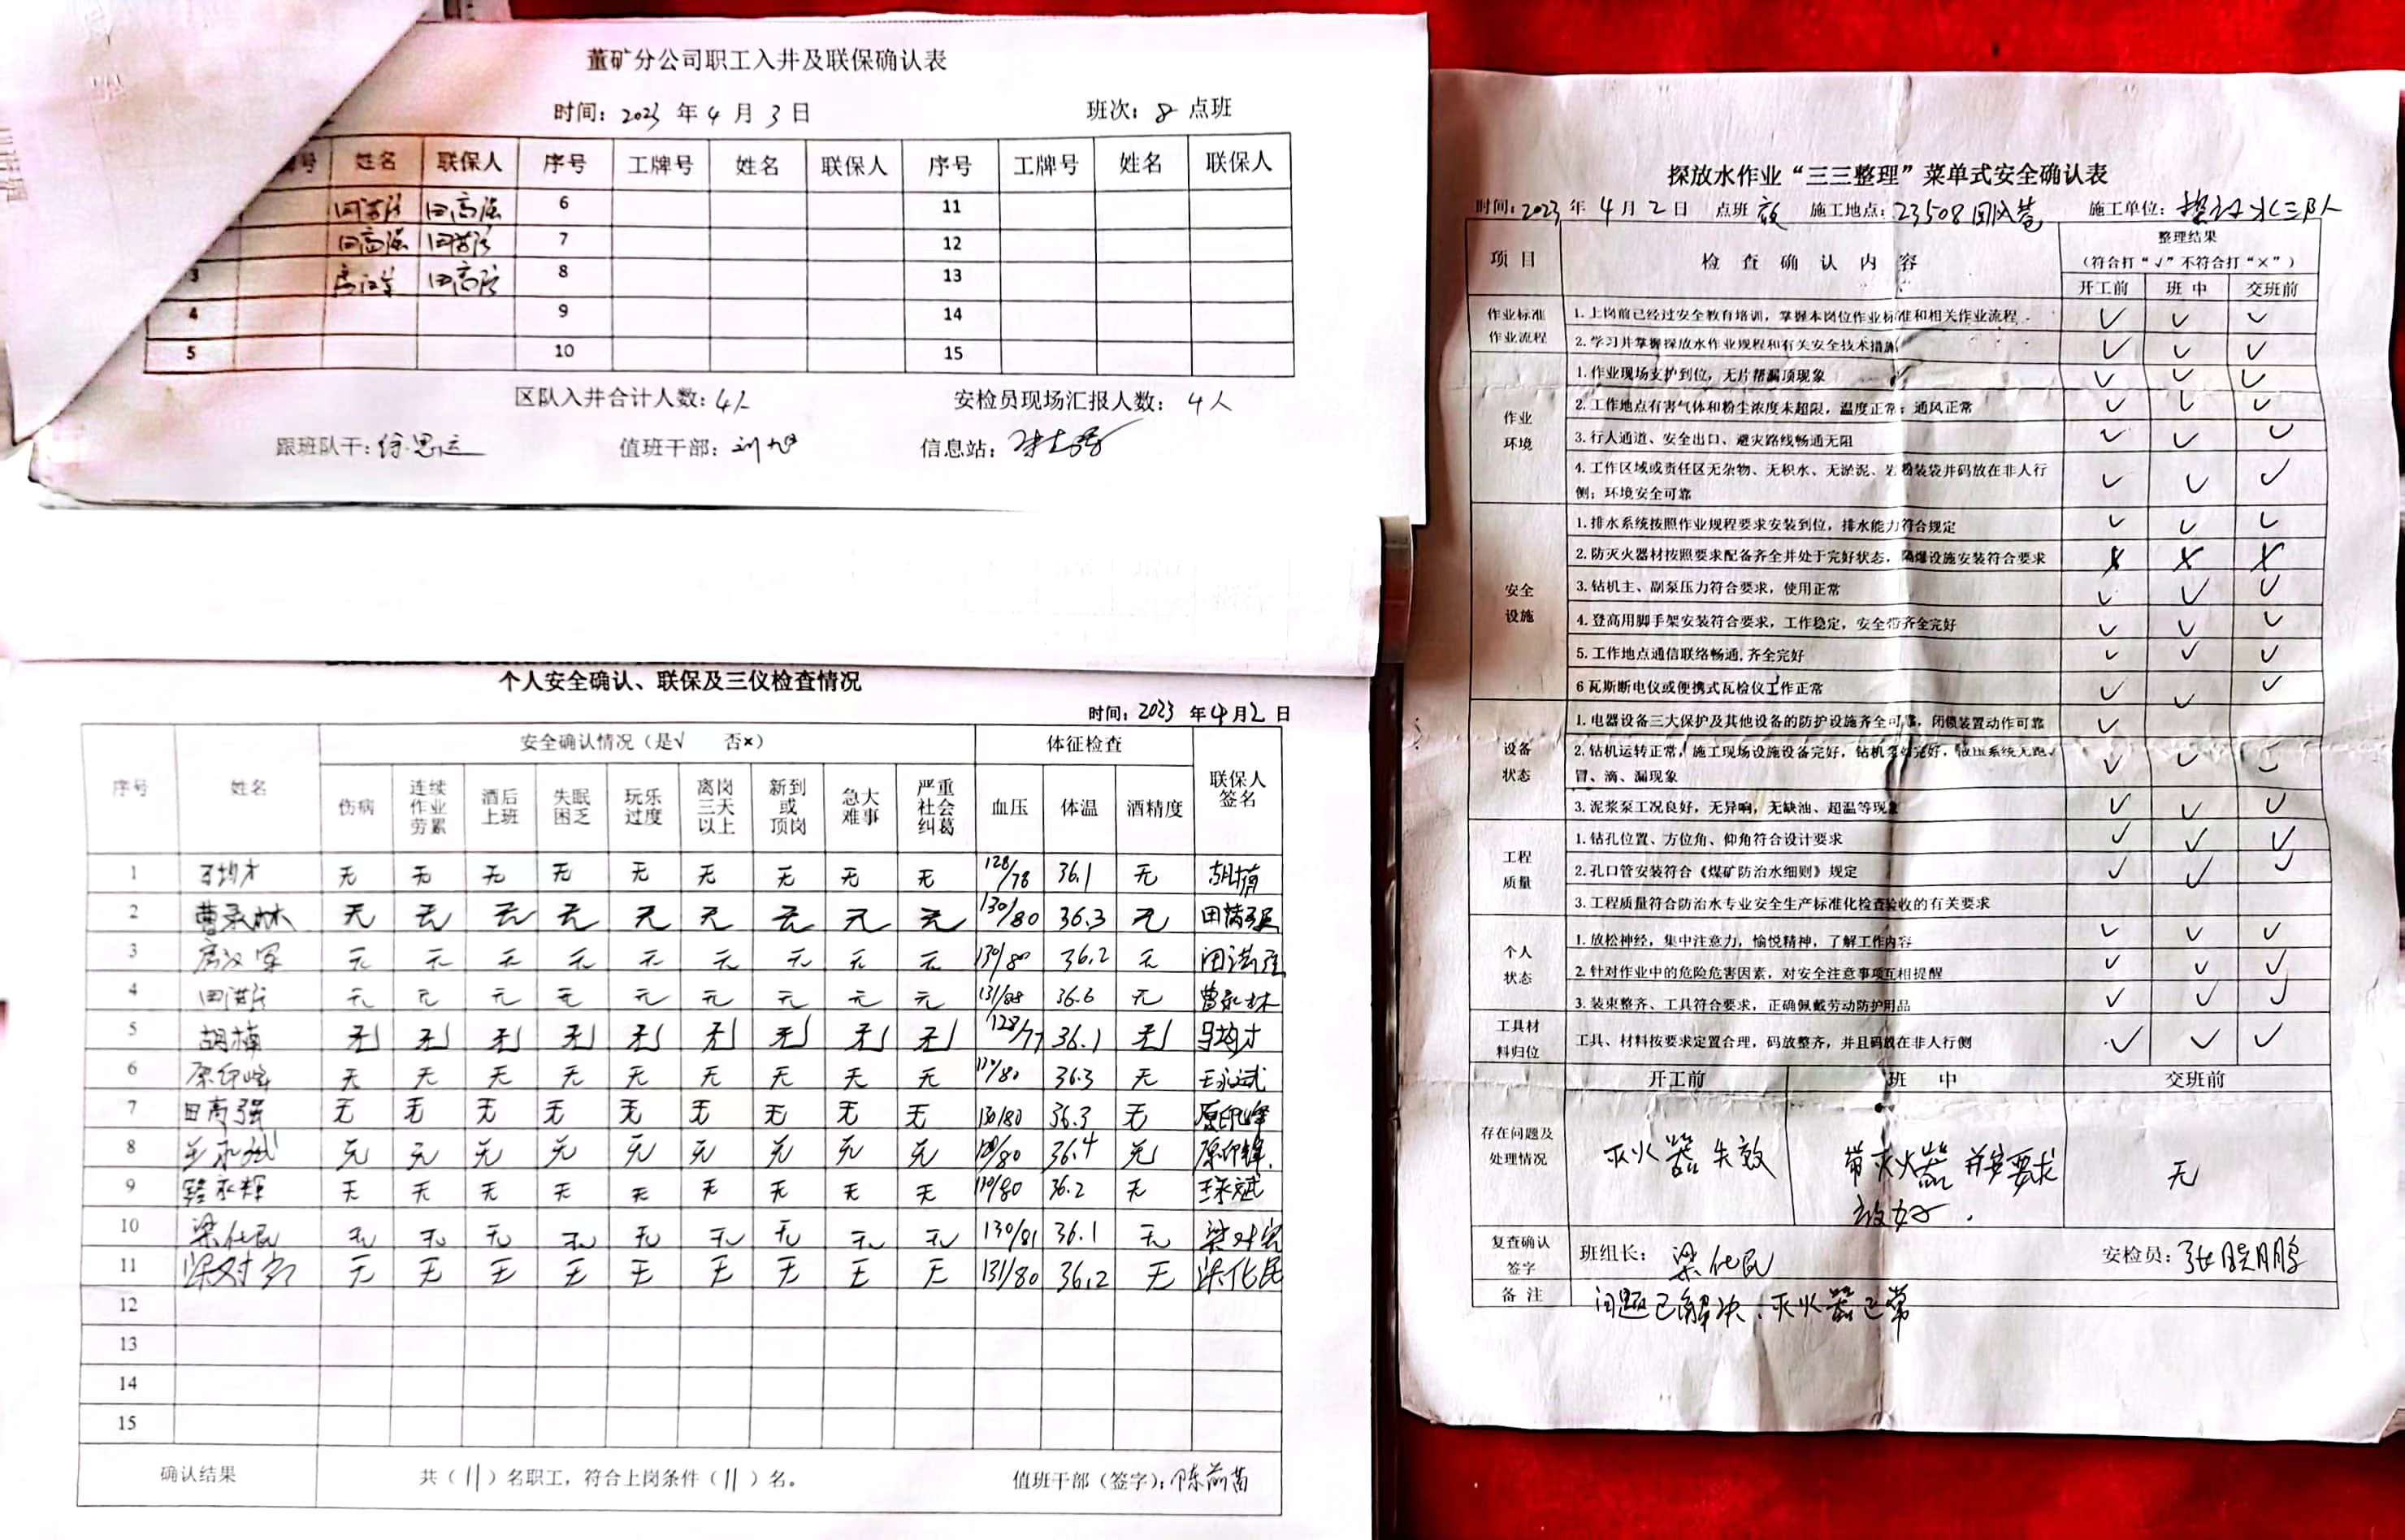 董矿分公司职工入井及联保确认表
时间: 2023 年 4 月 3 日 班次: 8 点班
号 姓名 联保人 序号 工牌号 姓名 联保人 序号 工牌号 姓名 联保人
田高强 6 11
田高强 7 12
3 田高强 8 13
4 9 14
5 10 15
区队入井合计人数: 4人 安检员现场汇报人数: 4人
跟班队干: 徐思运 值班干部: 刘旭 信息站:
个人安全确认、联保及三仪检查情况
时间: 2023 年 4 月 2 日
序号 姓名 安全确认情况（是√ 否×） 体征检查 联保人签名
伤病 连续作业劳累 酒后上班 失眠困乏 玩乐过度 离岗三天以上 新到或顶岗 急大难事 严重社会纠葛 血压 体温 酒精度
1 无 无 无 无 无 无 无 无 无 128/78 36.1 无 胡楠
2 曹永林 无 无 无 无 无 无 无 无 无 130/80 36.3 无
3 无 无 无 无 无 无 无 无 无 130/80 36.2 无
4 无 无 无 无 无 无 无 无 无 131/88 36.6 无 曹永林
5 胡楠 无 无 无 无 无 无 无 无 无 128/77 36.1 无
6 原印峰 无 无 无 无 无 无 无 无 无 /80 36.3 无 王永斌
7 田高强 无 无 无 无 无 无 无 无 无 130/80 36.3 无 原印峰
8 王永斌 无 无 无 无 无 无 无 无 无 /80 36.4 无 原印峰
9 永辉 无 无 无 无 无 无 无 无 无 /80 36.2 无 王永斌
10 梁化民 无 无 无 无 无 无 无 无 无 130/81 36.1 无
11 无 无 无 无 无 无 无 无 无 131/80 36.2 无 梁化民
12
13
14
15
确认结果 共（11）名职工，符合上岗条件（11）名。 值班干部（签字）: 陈前苗
探放水作业“三三整理”菜单式安全确认表
时间: 2023 年 4 月 2 日 点班 施工地点: 23508回风巷 施工单位: 探放水三队
项目 检查确认内容 整理结果
（符合打“√”不符合打“×”）
开工前 班中 交班前
作业标准作业流程 1. 上岗前已经过安全教育培训，掌握本岗位作业标准和相关作业流程 √ √ √
2. 学习并掌握探放水作业规程和有关安全技术措施 √ √ √
作业环境 1. 作业现场支护到位，无片帮漏顶现象 √ √ √
2. 工作地点有害气体和粉尘浓度未超限，温度正常；通风正常 √ √ √
3. 行人通道、安全出口、避灾路线畅通无阻 √ √ √
4. 工作区域或责任区无杂物、无积水、无淤泥、岩粉装袋并码放在非人行
侧；环境安全可靠 √ √ √
安全设施 1. 排水系统按照作业规程要求安装到位，排水能力符合规定 √ √ √
2. 防灭火器材按照要求配备齐全并处于完好状态，隔爆设施安装符合要求 × × ×
3. 钻机主、副泵压力符合要求，使用正常 √ √ √
4. 登高用脚手架安装符合要求，工作稳定，安全带齐全完好 √ √ √
5. 工作地点通信联络畅通, 齐全完好 √ √ √
6 瓦斯断电仪或便携式瓦检仪工作正常 √ √ √
设备状态 1. 电器设备三大保护及其他设备的防护设施齐全可靠，闭锁装置动作可靠 √
2. 钻机运转正常，施工现场设施设备完好，钻机泵站完好，液压系统无跑、
冒、滴、漏现象 √ √ √
3. 泥浆泵工况良好，无异响，无缺油、超温等现象 √ √ √
工程质量 1. 钻孔位置、方位角、仰角符合设计要求 √ √ √
2. 孔口管安装符合《煤矿防治水细则》规定 √ √ √
3. 工程质量符合防治水专业安全生产标准化检查验收的有关要求
个人状态 1. 放松神经，集中注意力，愉悦精神，了解工作内容 √ √ √
2. 针对作业中的危险危害因素，对安全注意事项互相提醒 √ √ √
3. 装束整齐、工具符合要求，正确佩戴劳动防护用品 √ √ √
工具材料归位 工具、材料按要求定置合理，码放整齐，并且码放在非人行侧 √ √ √
开工前 班中 交班前
存在问题及处理情况 灭火器失效 带灭火器并按要求 无
放好.
复查确认签字 班组长: 梁化民 安检员: 张鹏
备注 问题已解决、灭火器正常